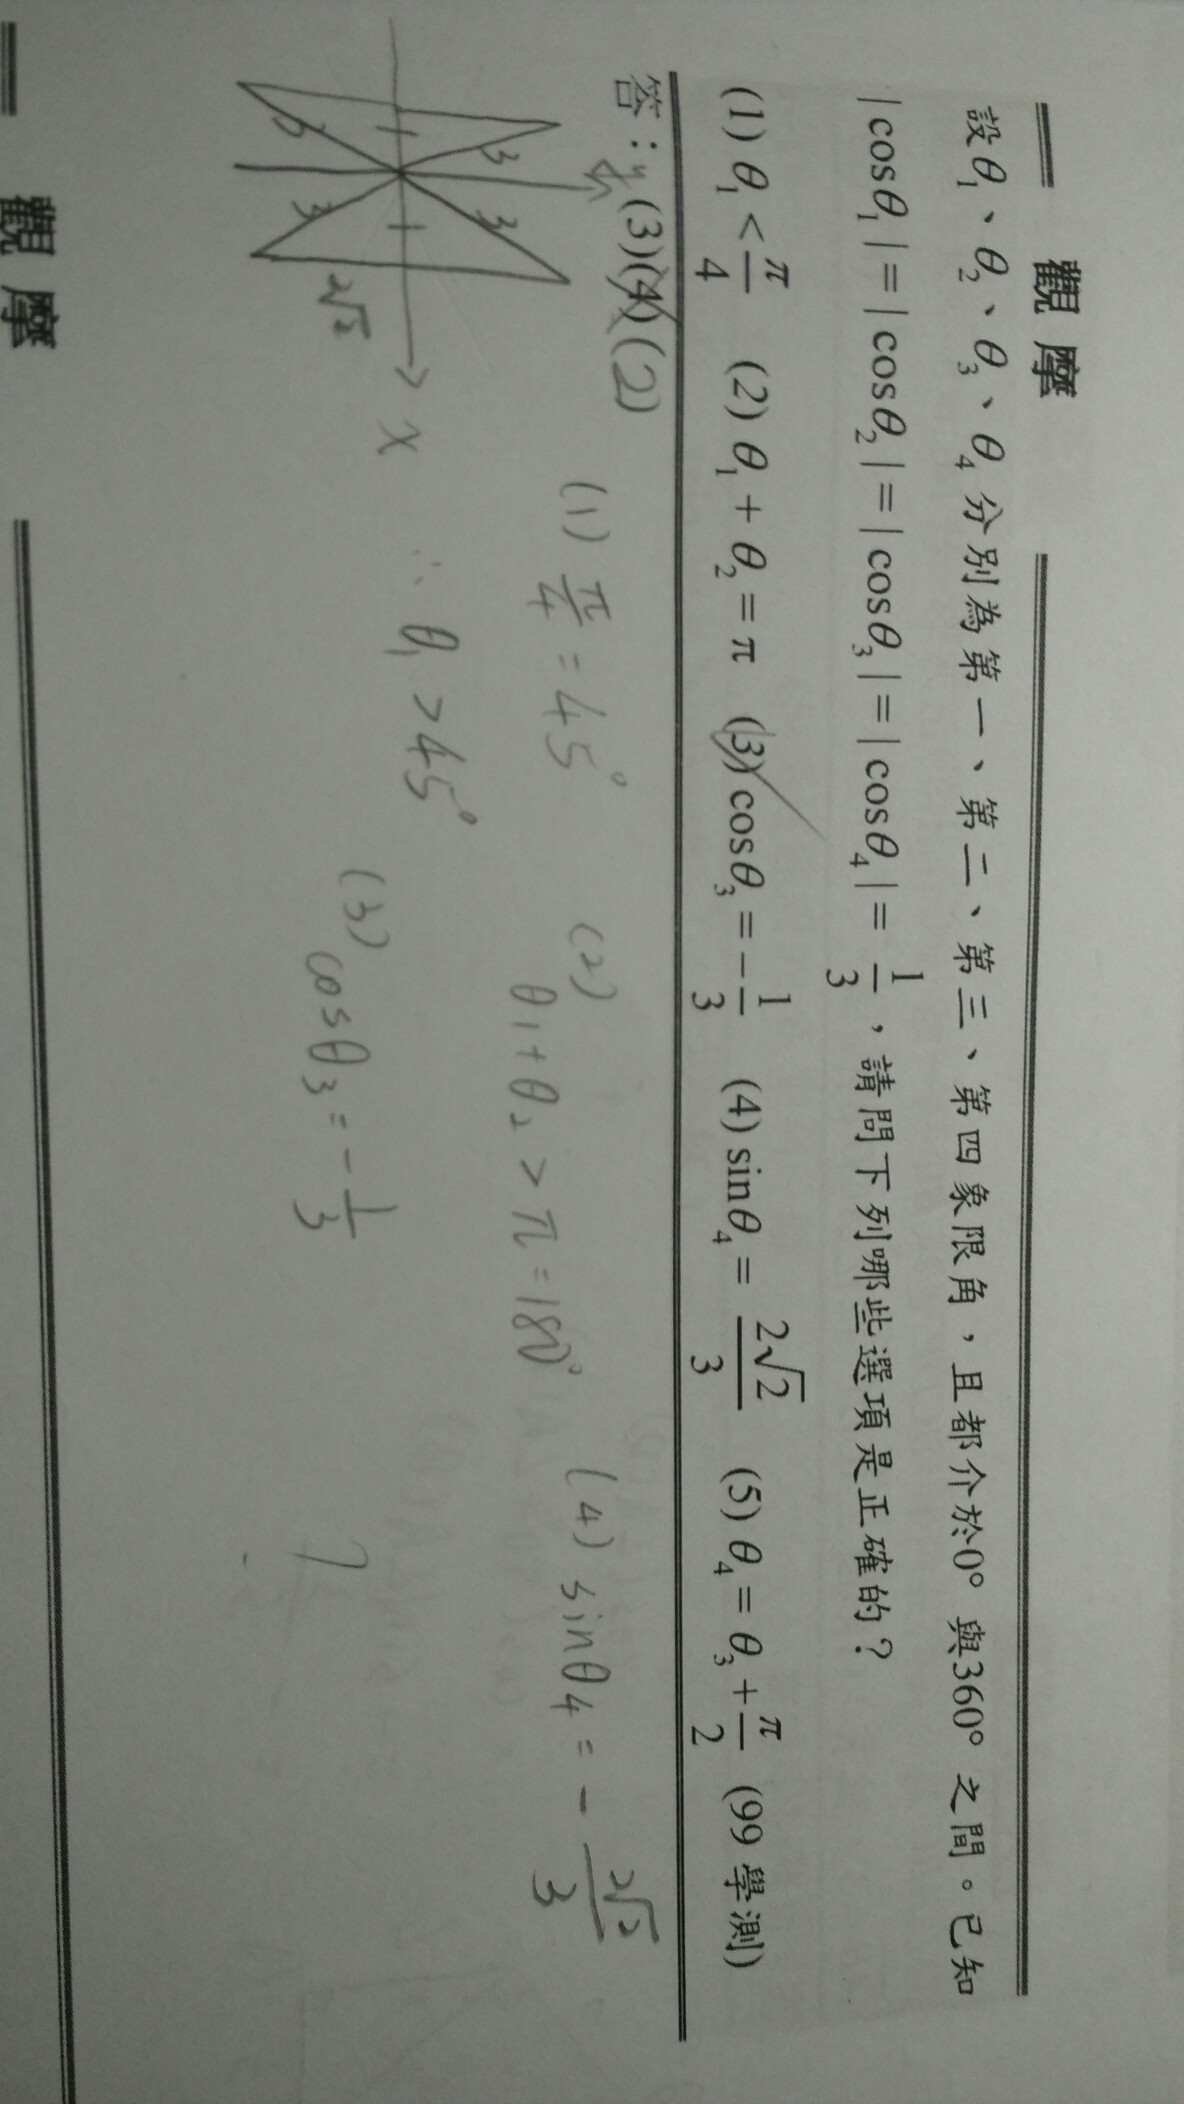 觀摩
設θ₁、θ₂、θ₃、θ₄ 分別為第一、第二、第三、第四象限角，且都介於0° 與360° 之間。已知
|cosθ₁|=|cosθ₂|=|cosθ₃|=|cosθ₄|=1/3，請問下列哪些選項是正確的？
(1) θ₁ < π/4 (2) θ₁ + θ₂ = π (3) cosθ₃ = -1/3 (4) sinθ₄ = 2√2/3 (5) θ₄ = θ₃ + π/2 (99 學測)
答：(3)(4)(2)
y
3 3
1 1 x
3 3
2√2
(1) π/4 = 45°
∴ θ₁ > 45°
(2)
θ₁+θ₂ > π = 180°
(3)
cosθ₃ = -1/3
(4) sinθ₄ = - 2√2/3
觀摩